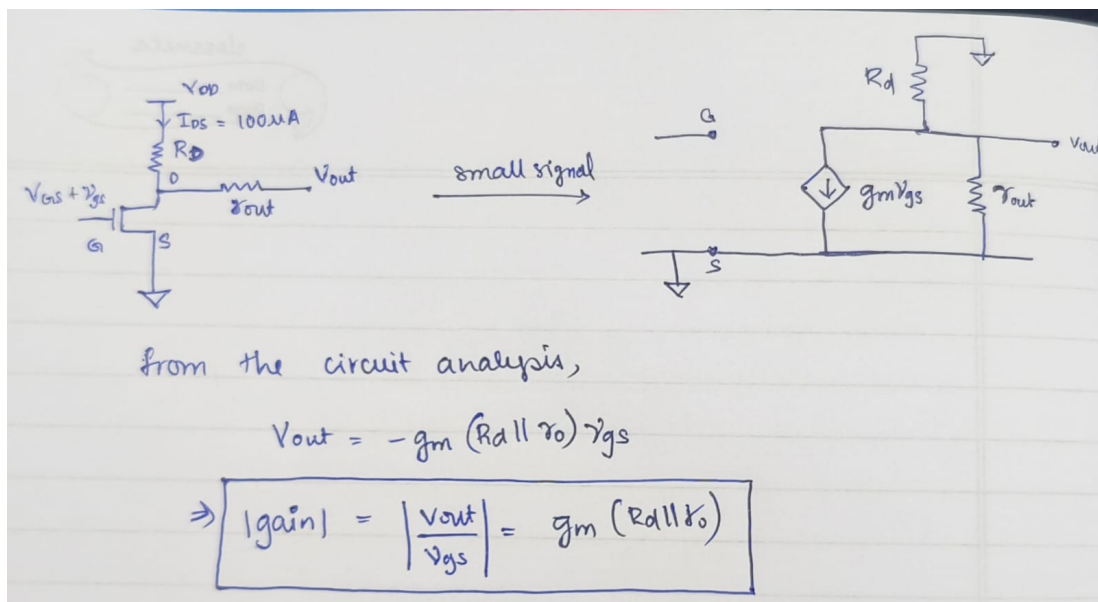 VDD
IDS = 100uA
RD
D
Vout
rout
VGS + vgs
G
S
small signal
G
Rd
Vout
gmvgs
rout
S
from the circuit analysis,
Vout = - gm (Rd || ro) vgs
⇒ |gain| = |Vout/vgs| = gm (Rd || ro)